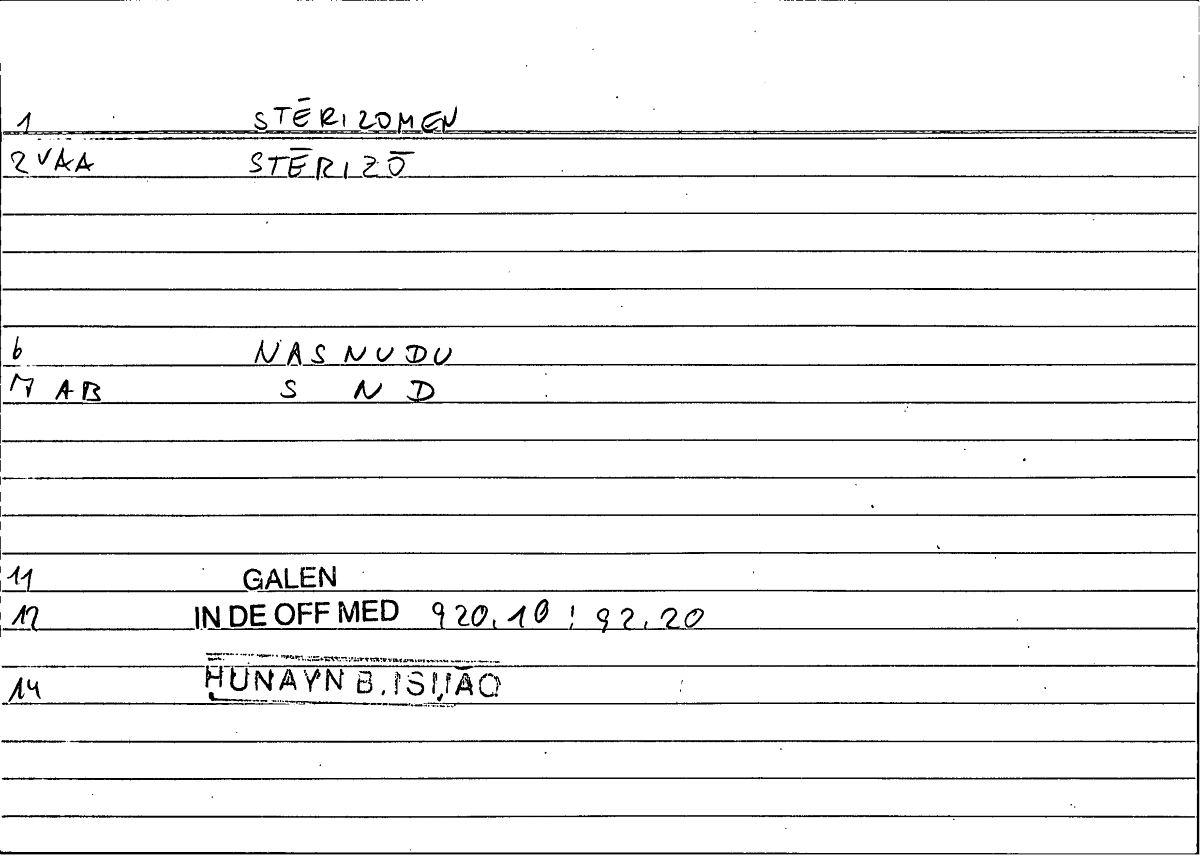 1 STĒRIZOMEN
2 VAA STĒRIZŌ
6 NASNUDU
7 AB S N D
11 GALEN
12 IN DE OFF MED 920.10 : 92.20
14 HUNAYN B. ISḤĀQ